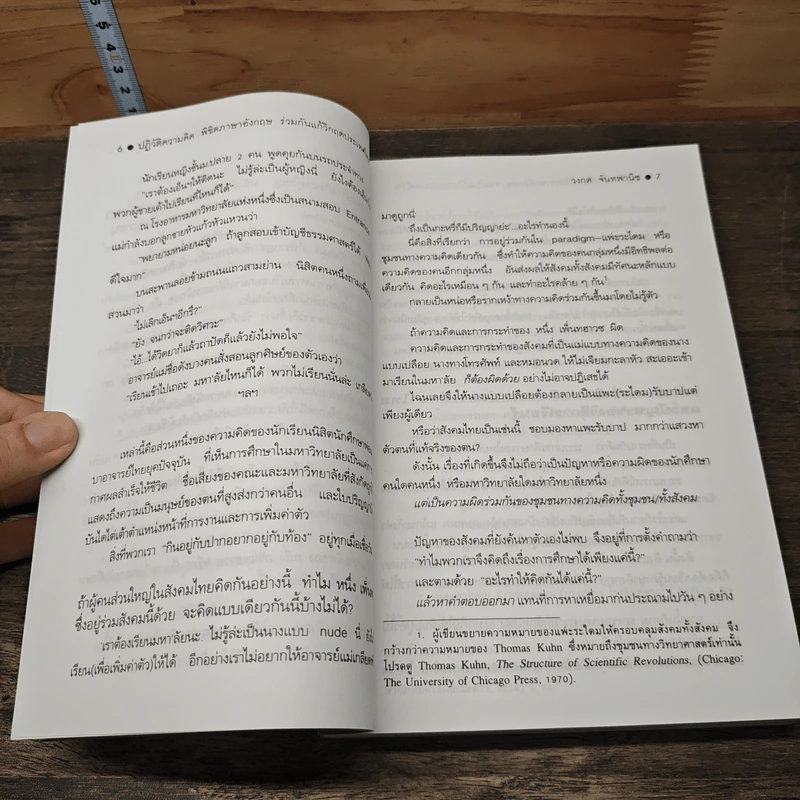 5
5
4
3
2
6 ● ปฏิวัติความคิด พิชิตภาษาอังกฤษ ร่วมกันแก้วิกฤตประเทศ
นักเรียนหญิงชั้นม.ปลาย 2 คน พูดคุยกันบนรถประจำทาง
"เราต้องเอ็นฯให้ติดนะ ไม่รู้ล่ะเป็นผู้หญิงนี่ ยังไงต้อง
พวกผู้ชายเค้าไปเรียนที่ไหนก็ได้"
ณ โรงอาหารมหาวิทยาลัยแห่งหนึ่งซึ่งเป็นสนามสอบ
แม่กำลังบอกลูกชายหัวแก้วหัวแหวนว่า
"พยายามหน่อยนะลูก ถ้าลูกสอบเข้าบัญชีธรรมศาสตร์ได้
ดีใจมาก"
บนสะพานลอยข้ามถนนแถวสามย่าน นิสิตคนหนึ่งถามเพื่อน
สวนมาว่า
"ไม่เลิกเอ็นฯอีกรึ?"
"ยัง จนกว่าจะติดวิศวะ"
"โอ้...ได้วิดยาก็แล้วถาปัดก็แล้วยังไม่พอใจ"
อาจารย์แม่ชื่อดังบางคนสั่งสอนลูกศิษย์ของตัวเองว่า
"เรียนเข้าไปเถอะ มหา'ลัยไหนก็ได้ พวกไม่เรียนนั่นล่ะ
ฯลฯ
เหล่านี้คือส่วนหนึ่งของความคิดของนักเรียนนิสิตนักศึกษา
บาอาจารย์ไทยยุคปัจจุบัน ที่เห็นการศึกษาในมหาวิทยาลัยเป็น
กาศผลสำเร็จให้ชีวิต ชื่อเสียงของคณะและมหาวิทยาลัยที่
แสดงถึงความเป็นมนุษย์ของตนที่สูงส่งกว่าคนอื่น และใบปริญญา
บันไดไต่เต้าตำแหน่งหน้าที่การงานและการเพิ่มค่าตัว
สิ่งที่พวกเรา "กินอยู่กับปากอยากอยู่กับท้อง" อยู่ทุกเมื่อเชื่อวัน
ถ้าผู้คนส่วนใหญ่ในสังคมไทยคิดกันอย่างนี้ ทำไม หนึ่ง
ซึ่งอยู่ร่วมสังคมนี้ด้วย จะคิดแบบเดียวกันนี้บ้างไม่ได้?
'เราต้องเรียนมหา'ลัยนะ ไม่รู้ล่ะเป็นนางแบบ nude นี่
เรียน(เพื่อเพิ่มค่าตัว)ให้ได้ อีกอย่างเราไม่อยากให้อาจารย์แม่เกลียด
วงกต จันทพานิช ● 7
มาดูถูกนี่'
'ถึงเป็นกะหรี่ก็มีปริญญาย่ะ'...อะไรทำนองนี้
นี่คือสิ่งที่เรียกว่า การอยู่ร่วมกันใน paradigm—แพะระไดม หรือ
ชุมชนทางความคิดเดียวกัน ซึ่งทำให้ความคิดของคนกลุ่มหนึ่งมีอิทธิพลต่อ
ความคิดของคนอีกกลุ่มหนึ่ง อันส่งผลให้สังคมทั้งสังคมมีทัศนะหลักแบบ
เดียวกัน คิดอะไรเหมือน ๆ กัน และทำอะไรคล้าย ๆ กัน¹
กลายเป็นหน่อหรือรากเหง้าทางความคิดร่วมกันขึ้นมาโดยไม่รู้ตัว
ถ้าความคิดและการกระทำของ หนึ่ง เพ็นทฮาวซ ผิด
ความคิดและการกระทำของสังคมที่เป็นแม่แบบทางความคิดของนาง
แบบเปลือย นางทางโทรศัพท์ และหมอนวด ให้ไม่เจียมกะลาหัว สะเออะเข้า
มาเรียนในมหา'ลัย ก็ต้องผิดด้วย อย่างไม่อาจปฏิเสธได้
ไฉนเลยจึงให้นางแบบเปลือยต้องกลายเป็นแพะ(ระไดม)รับบาปแต่
เพียงผู้เดียว
หรือว่าสังคมไทยเป็นเช่นนี้ ชอบมองหาแพะรับบาป มากกว่าแสวงหา
ตัวตนที่แท้จริงของตน?
ดังนั้น เรื่องที่เกิดขึ้นจึงไม่ถือว่าเป็นปัญหาหรือความผิดของนักศึกษา
คนใดคนหนึ่ง หรือมหาวิทยาลัยใดมหาวิทยาลัยหนึ่ง
แต่เป็นความผิดร่วมกันของชุมชนทางความคิดทั้งชุมชน/ทั้งสังคม
ปัญหาของสังคมที่ยังค้นหาตัวเองไม่พบ จึงอยู่ที่การตั้งคำถามว่า
"ทำไมพวกเราจึงคิดถึงเรื่องการศึกษาได้เพียงแค่นี้?"
และตามด้วย "อะไรทำให้คิดกันได้แค่นี้?"
แล้วหาคำตอบออกมา แทนที่การหาเหยื่อมาก่นประณามไปวัน ๆ อย่าง
1. ผู้เขียนขยายความหมายของแพะระไดมให้ครอบคลุมสังคมทั้งสังคม จึง
กว้างกว่าความหมายของ Thomas Kuhn ซึ่งหมายถึงชุมชนทางวิทยาศาสตร์เท่านั้น
โปรดดู Thomas Kuhn, The Structure of Scientific Revolutions, (Chicago:
The University of Chicago Press, 1970).